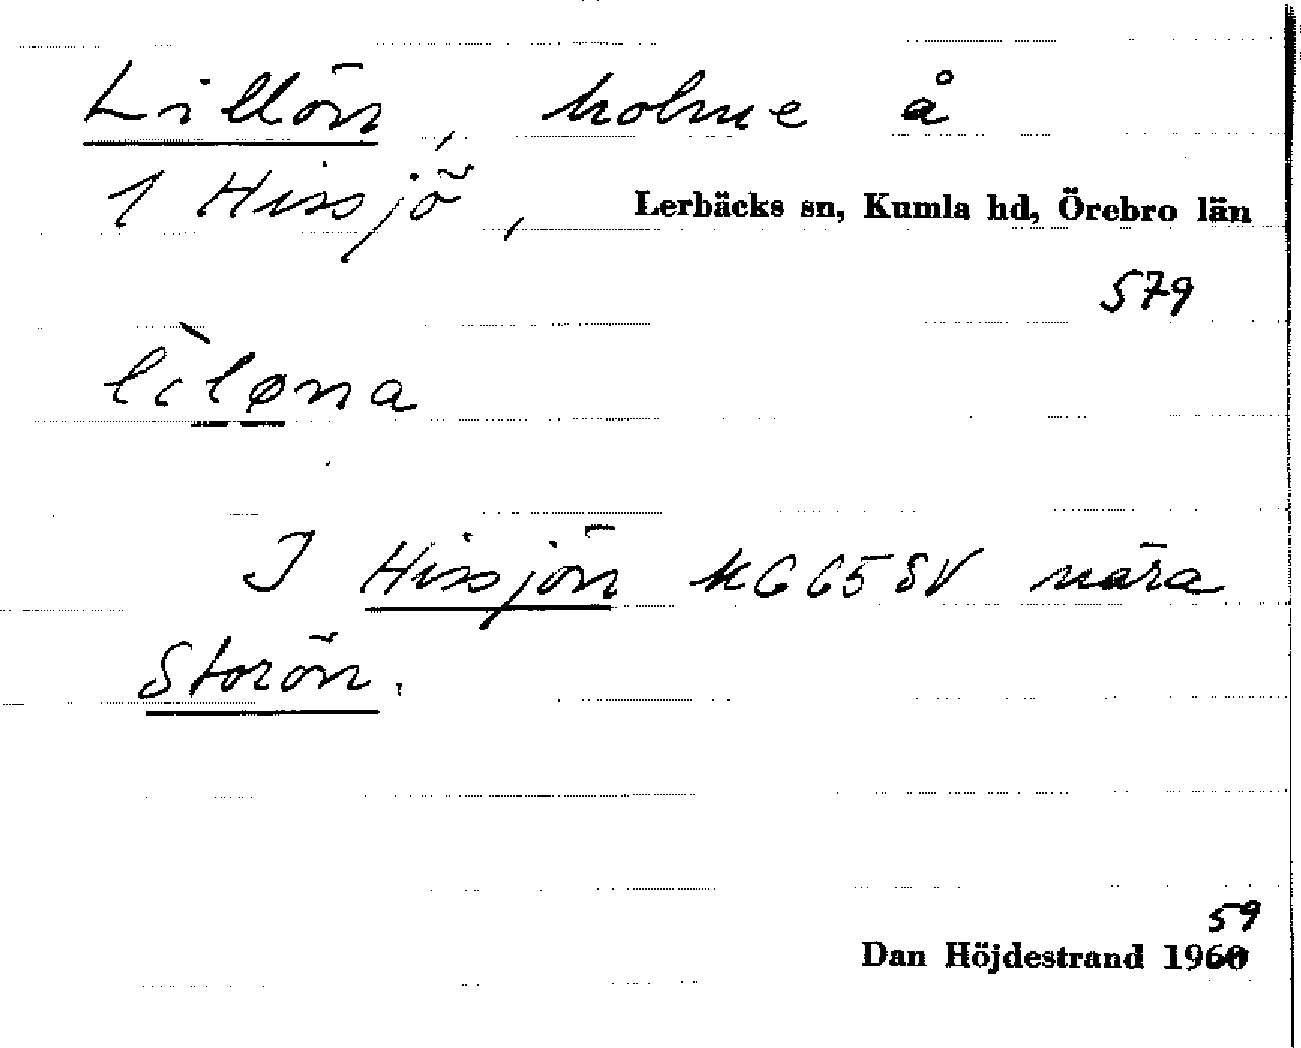 Lillön, holme å
1 Hissjö, Lerbäcks sn, Kumla hd, Örebro län
579
lìløna
I Hissjön k6 65 SV nära
Storön.
59
Dan Höjdestrand 1960